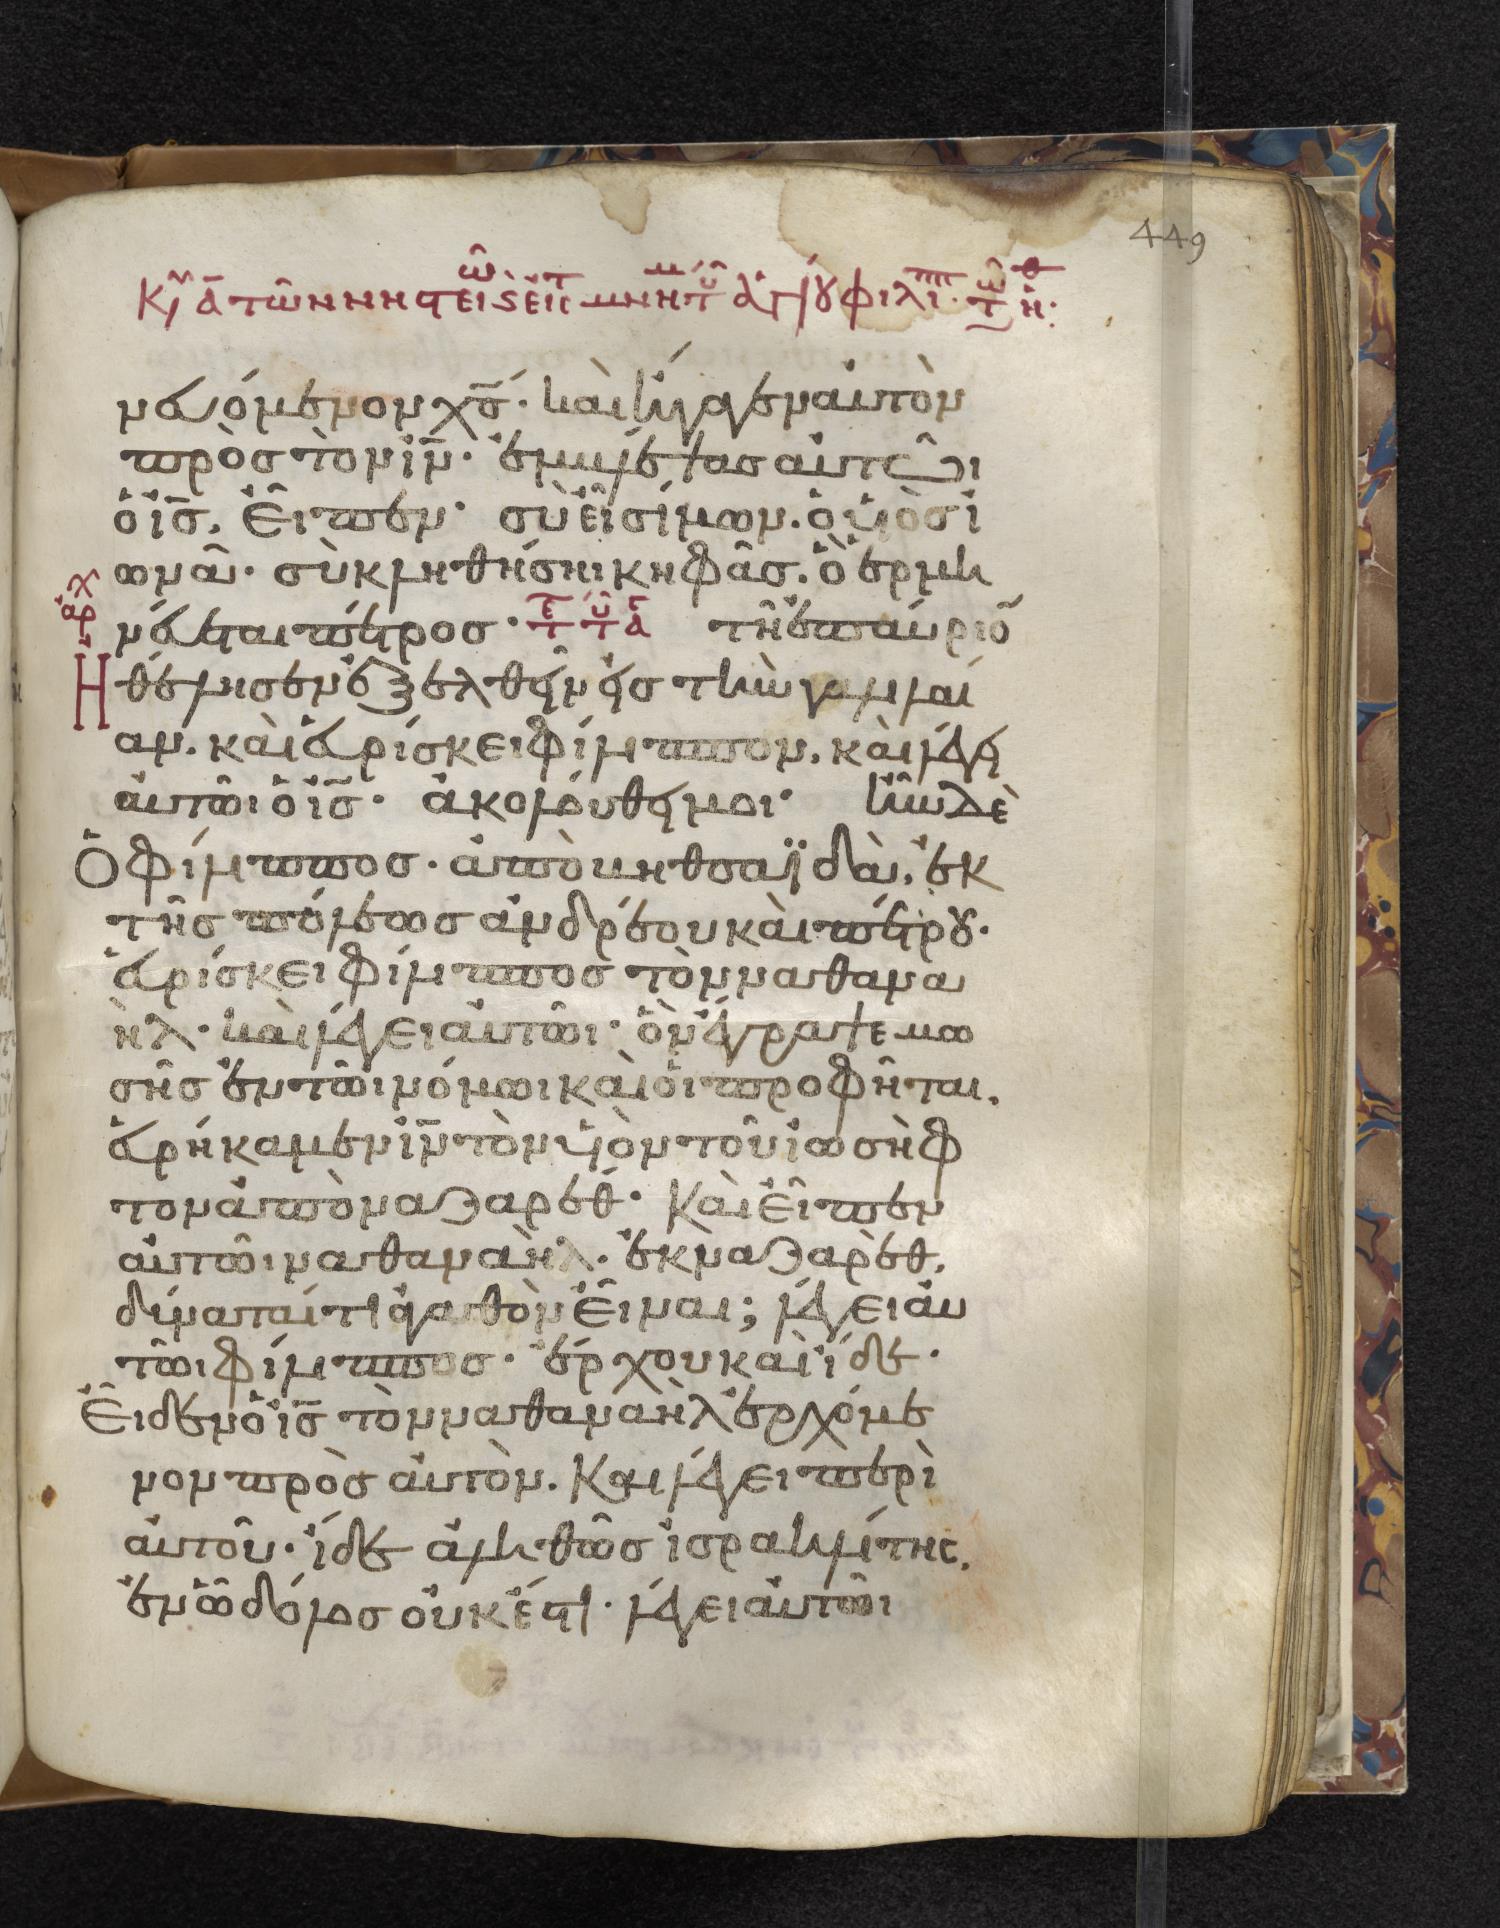 449
Κυ ᾱ τῶν νηστειῶ ς εἰς τ μνημ τοῦ ἁγίου φιλίππ τῶ ἡ:
νευόμενον χς̄· καὶ ἤγαγεν αὐτὸν
πρὸς τὸν ιν̄· ἐμβλέψας αὐτῶι
ὁ ις̄. εἶπεν· σὺ εἶ σίμων. ὁ υἱὸς ἰ
ωνᾶ· σὺ κληθήσηι κηφᾶς. ὃ ἑρμη
νεύεται πέτρος· τε τοῦ ᾱ τῆ ἐπαύριο̄
αρχ
Ηθέλησεν ἐξελθεῖν εἰς τὴν γαλιλαί
αν. καὶ εὑρίσκει φίλιππον. καὶ λέγει
αὐτῶι ὁ ις̄· ἀκολούθει μοι· ἦν δὲ
Ὁ φίλιππος· ἀπὸ βηθσαϊδὰ. ἐκ
τῆς πόλεως ἀνδρέου καὶ πέτρου·
εὑρίσκει φίλιππος τὸν ναθανα
ὴλ· καὶ λέγει αὐτῶι· ὃν ἔγραψε μω
σῆς ἐν τῶι νόμωι καὶ οἱ προφῆται.
εὑρήκαμεν ιν̄ τὸν υἱὸν τοῦ ἰωσὴφ
τον ἀπὸ ναζαρέθ· Καὶ εἶπεν
αὐτῶι ναθαναὴλ· ἐκ ναζαρὲθ.
δύναται τὶ ἀγαθὸν εἶναι; λέγει αὐ
τῶι φίλιππος· ἔρχου καὶ ἴδε·
Εἶδεν ὁ ις̄ τὸν ναθαναὴλ ἐρχόμε
νον πρὸς αὐτὸν. Και λέγει περὶ
αὐτοῦ· ἴδε ἀληθῶς ἰσραηλίτης.
ἐν ὧ δόλος οὐκ ἔστι· λέγει αὐτῶι